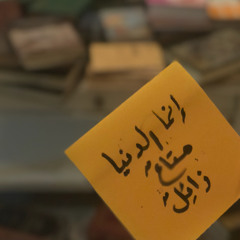 إنما الدنيا
متاع
زائل